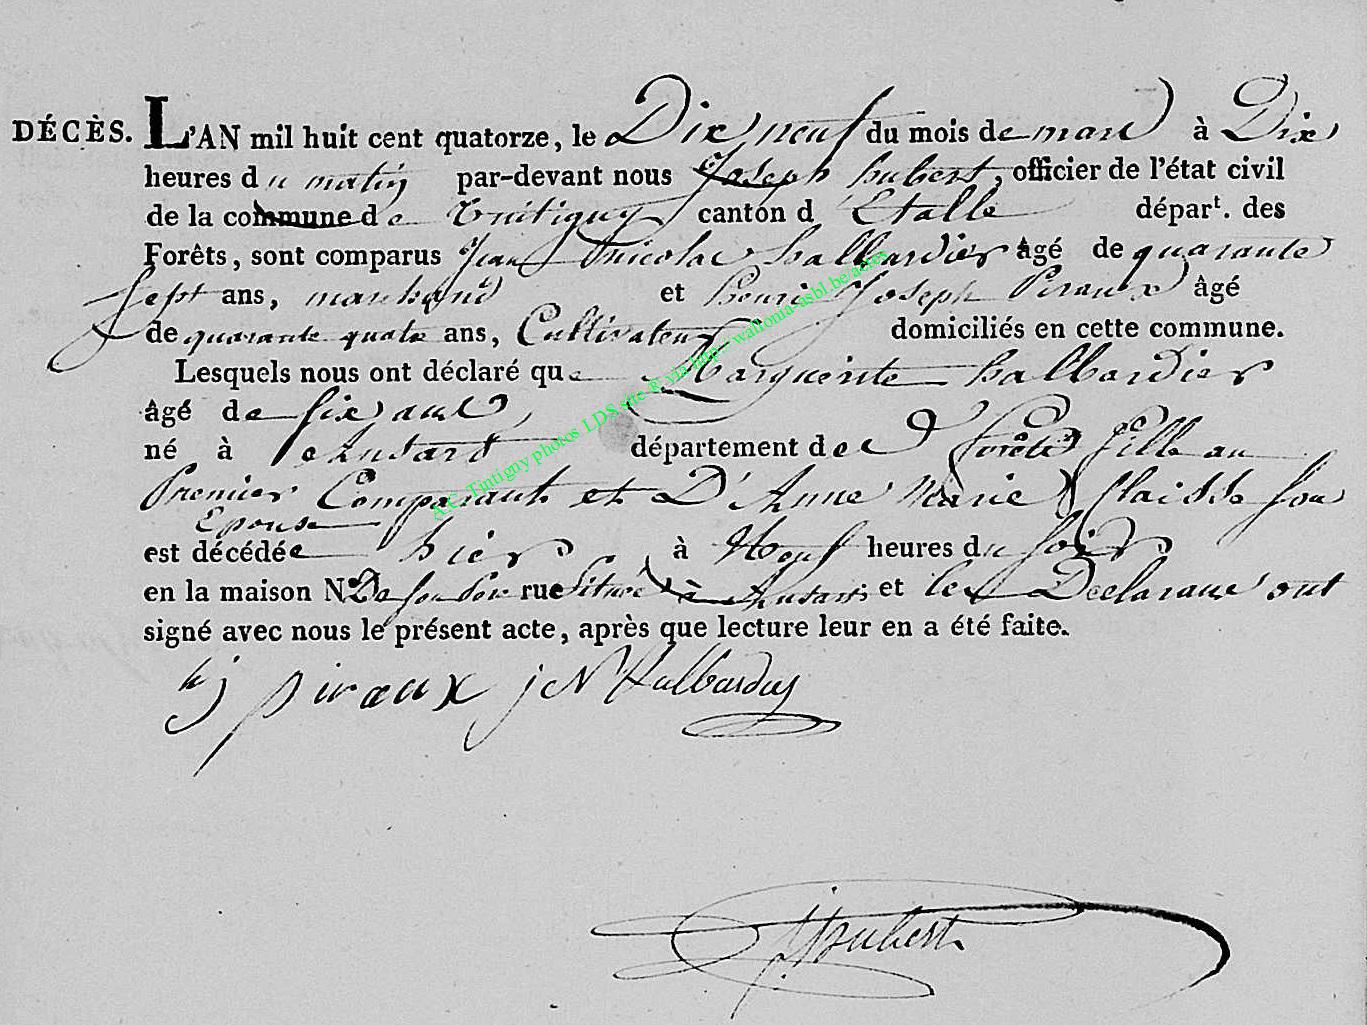 DÉCÈS. L'AN mil huit cent quatorze, le Dix neuf du mois de mars à Dix
heures du matin par-devant nous Joseph hubert, officier de l'état civil
de la commune de Tintigny canton d'Etalle départ. des
Forêts, sont comparus Jean Nicolas hallbardier âgé de quarante
sept ans, marchand et henri Joseph Piraux âgé
de quarante quatre ans, Cultivateur domiciliés en cette commune.
Lesquels nous ont déclaré que Marguerite hallbardier
âgé de six ans,
né à ansart département des forêts fille au
Premier Comparant et D'Anne Marie Claisse son
Epouse
est décédée hier à Neuf heures du soir
en la maison No De son Père rue située à ansart et les Declarans ont
signé avec nous le présent acte, après que lecture leur en a été faite.
hj piraux jN halbardier
J hubert
A.C. Tintigny photos LDS site © via http://wallonia-asbl.be/actes